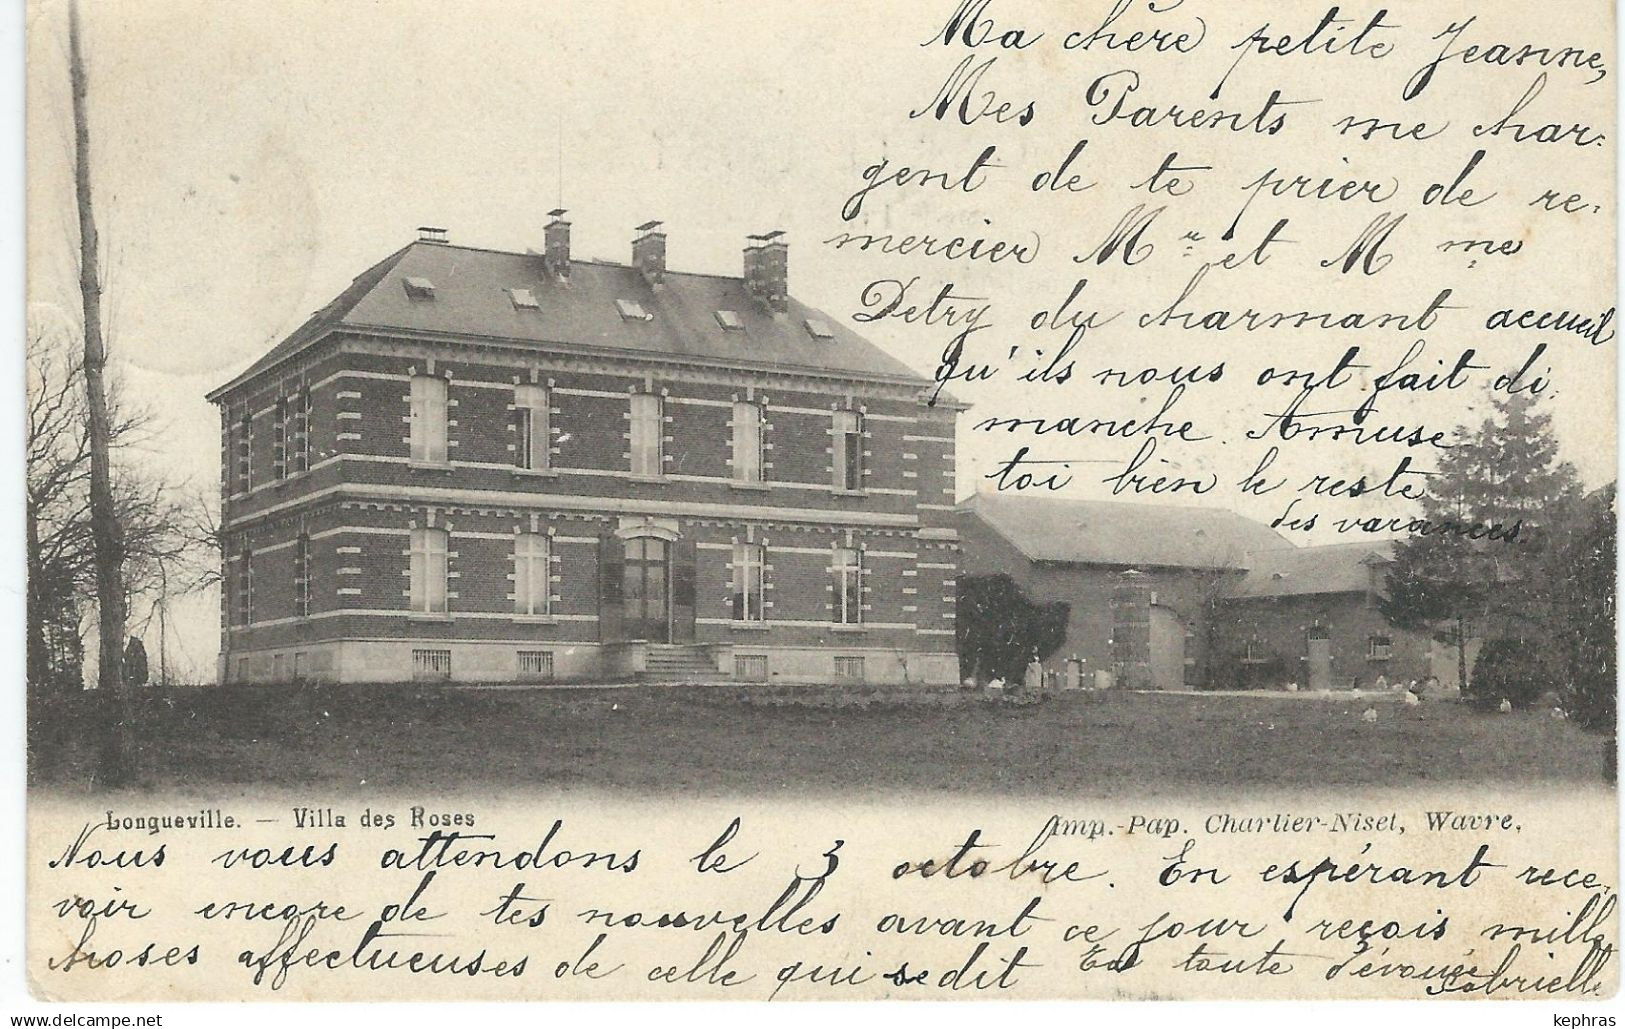 Ma chère petite Jeanne,
Mes Parents me char-
gent de te prier de re-
mercier Mr et Mme
Detry du charmant accueil
qu'ils nous ont fait di-
manche. Amuse
toi bien le reste
des vacances.
Longueville. — Villa des Roses
Imp.-Pap. Charlier-Niset, Wavre.
Nous vous attendons le 3 octobre. En espérant rece-
voir encore de tes nouvelles avant ce jour reçois mille
choses affectueuses de celle qui se dit Ta toute dévouée
Gabrielle
kephras